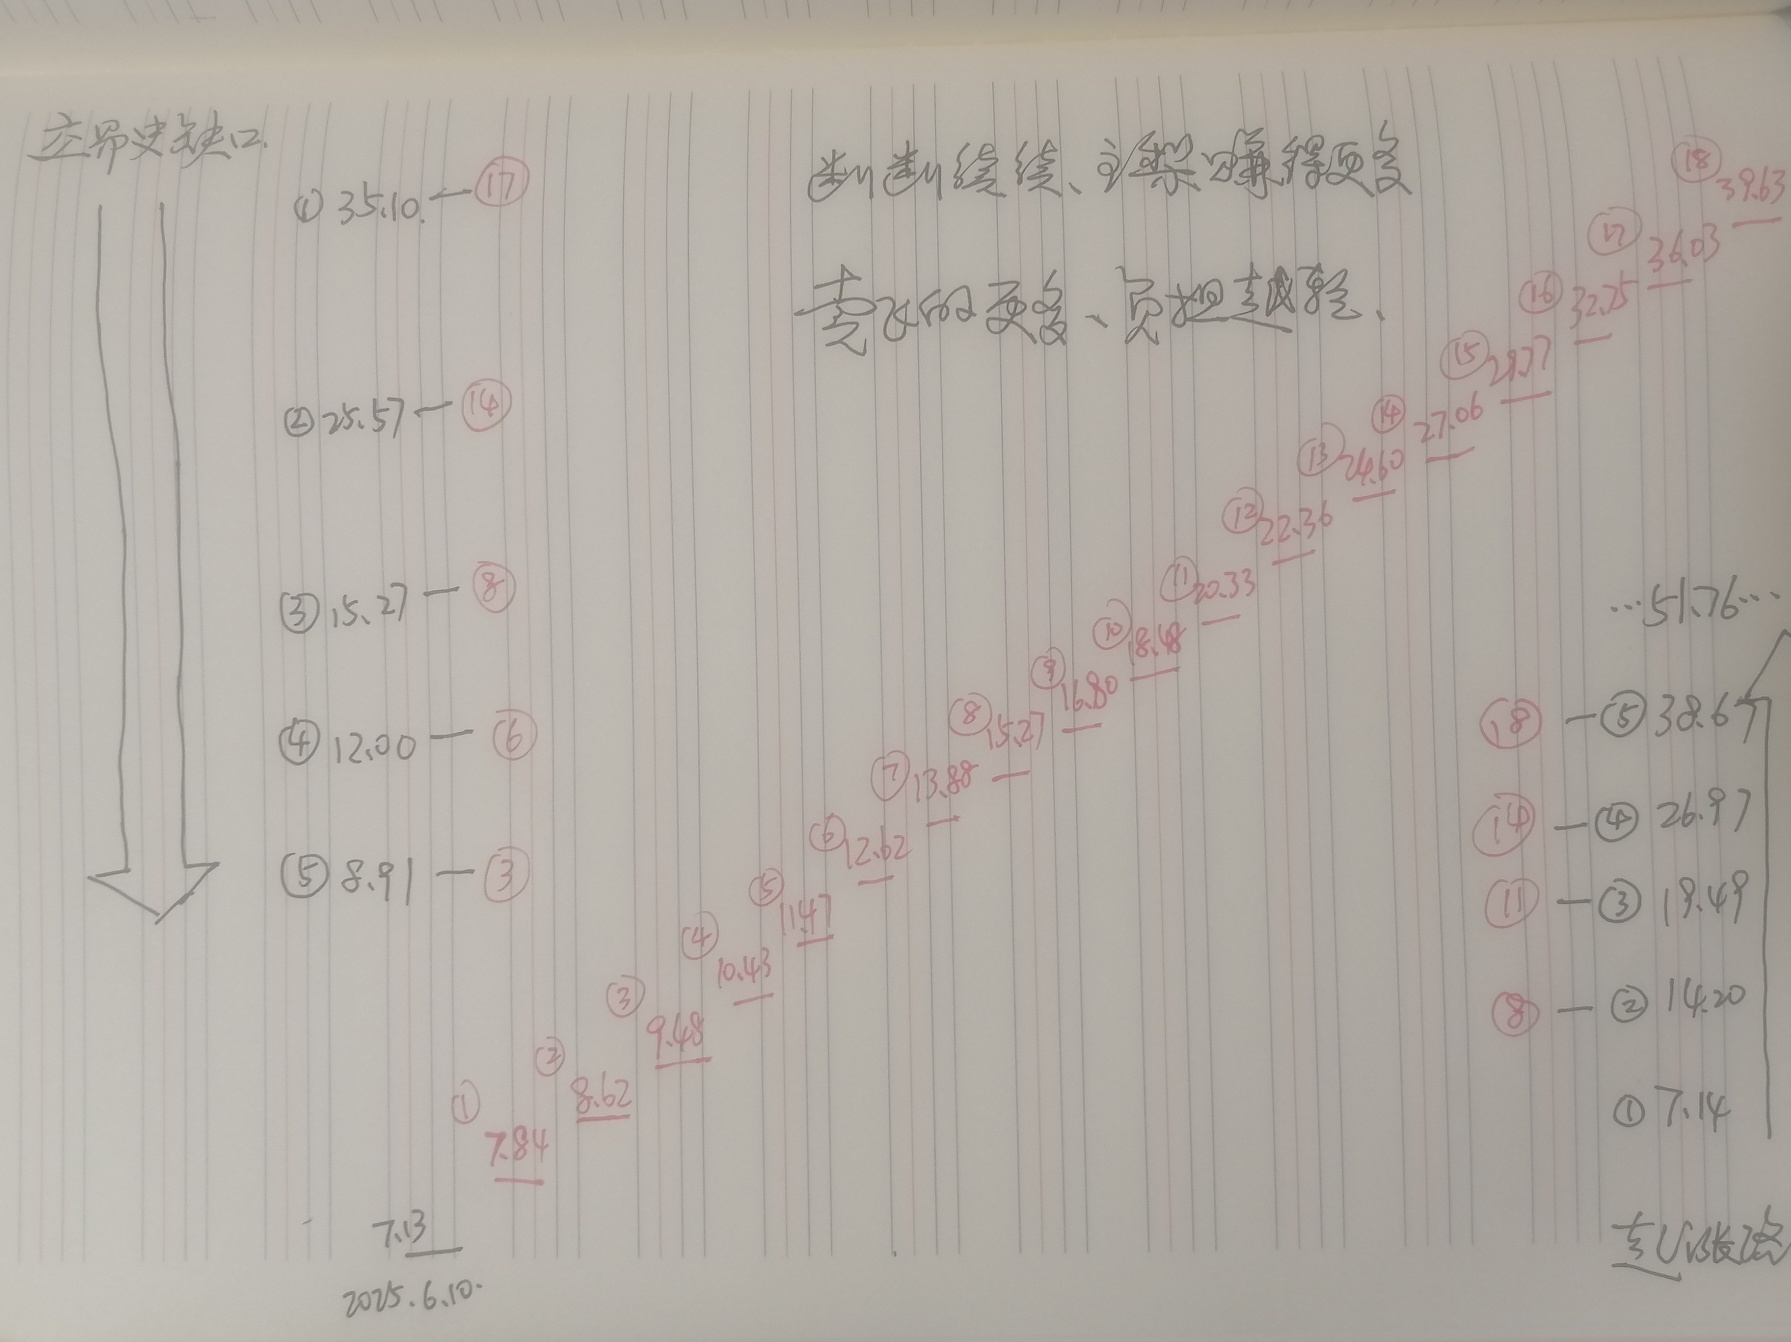 断断续续、
卖飞的更多、负担越轻、
缺口
① 35.10 — ⑰
② 25.57 — ⑭
③ 15.27 — ⑧
④ 12.00 — ⑥
⑤ 8.91 — ③
7.13
2025.6.10.
① 7.84
② 8.62
③ 9.48
④ 10.43
⑤ 11.47
⑥ 12.62
⑦ 13.88
⑧ 15.27
⑨ 16.80
⑩ 18.48
⑪ 20.33
⑫ 22.36
⑬ 24.60
⑭ 27.06
⑮ 29.77
⑯ 32.75
⑰ 36.03
⑱ 39.63
…51.76…
⑱ — ⑤ 38.67
⑭ — ④ 26.97
⑪ — ③ 19.49
⑧ — ② 14.20
① 7.14